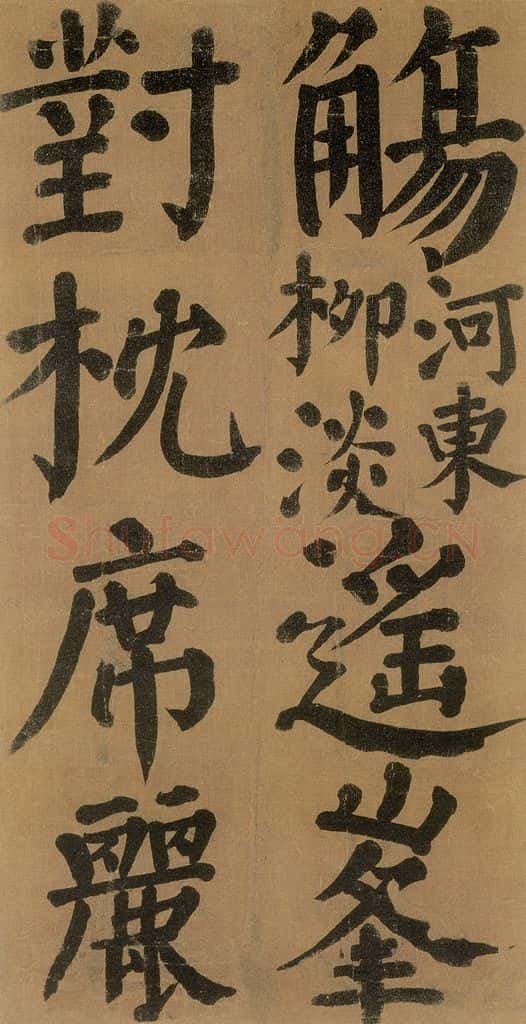 觴
河東
柳淡
遙峯
對枕席麗
Shufawang.CN